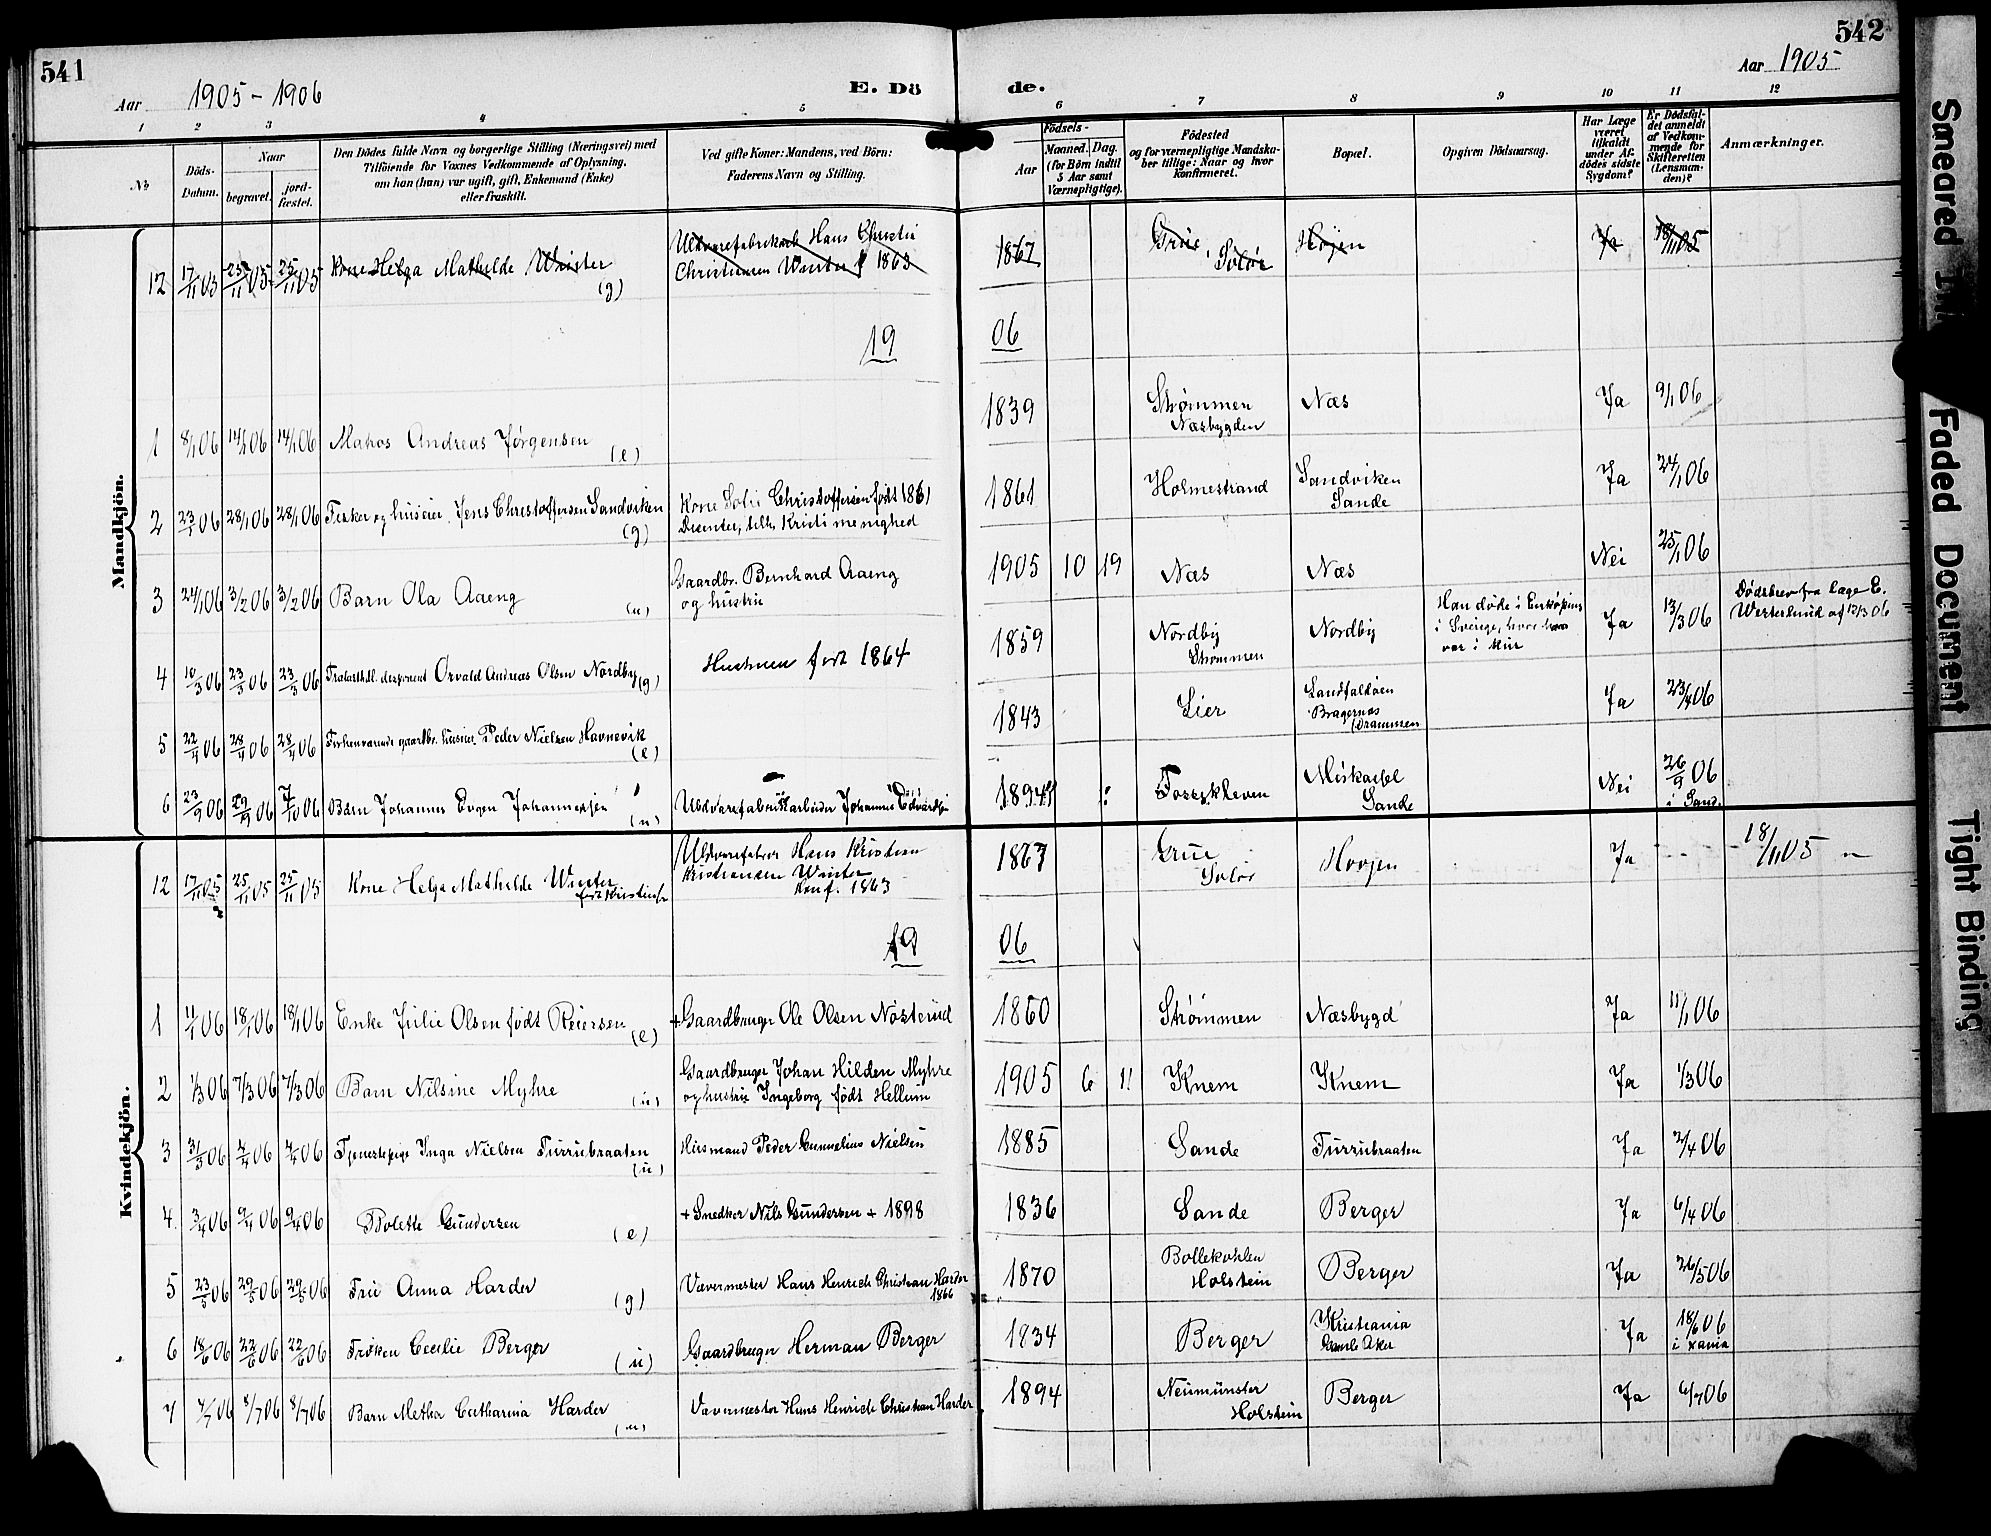 541
Aar 1905-1906
E. Dö
de.
542
Aar 1905
1 2 3 4 5 6 7 8 9 10 11 12
No
Döds-
Datum.
Naar
begravet.
jord-
fæstet.
Den Dödes fulde Navn og borgerlige Stilling (Næringsvei) med
Tilföiende for Voxnes Vedkommende af Oplysning,
om han (hun) var ugift, gift, Enkemand (Enke)
eller fraskilt.
Ved gifte Koner: Mandens, ved Börn:
Faderens Navn og Stilling.
Födsels-
Aar
Maaned. Dag.
(for Börn indtil
5 Aar samt
Værnepligtige).
Födested
og for værnepligtige Mandska-
ber tillige: Naar og hvor
konfirmeret.
Bopæl.
Opgiven Dödsaarsag.
Har Læge
været
tilkaldt
under Af-
dödes sidste
Sygdom?
Er Dödsfal-
det anmeldt
af Vedkom-
mende for
Skifteretten
(Lensman-
den)?
Anmærkninger.
Mandkjön.
12 17/11 05 25/11 05 25/11 05 Kone Helga Mathilde Winter (g) Uldvarefabrikant Hans Christian
Christiansen Winter f 1863 1867 Grue Solør Højen Ja 18/11 05
19 06
1 8/1 06 14/1 06 14/1 06 Matros Andreas Jørgensen (e) 1839 Strømmen
Næsbygden Næs Ja 9/1 06
2 23/1 06 28/1 06 28/1 06 Fisker og huseier Jens Christoffersen Sandviken (g) Kone Sofie Christoffersen født 1861
Disenter, tilh. Kristi menighed 1861 Holmestrand Sandviken
Sande Ja 24/1 06
3 24/1 06 3/2 06 3/2 06 Barn Ola Aaeng (u) Gaardbr. Bernhard Aaeng
og hustru 1905 10 19 Næs Næs Nei 25/1 06
4 10/3 06 23/3 06 23/3 06 Trælasthdl. disponent Osvald Andreas Olsen Nordby (g) Hustruen født 1864 1859 Nordby
Strømmen Nordby Han døde i Enköping
i Sverige, hvor han
var i kur Ja 13/3 06 Dödsbrev fra læge E.
Westerlund af 12/3 06
5 22/4 06 28/4 06 28/4 06 Forhenværende gaardbr. huseier Peder Nielsen Havnevik (e) 1843 Lier Landfaldøen
Bragernæs
(Drammen Ja 23/4 06
6 23/9 06 29/9 06 7/10 06 Barn Johannes Evgen Johannessen (u) Uldvarefabrikarbeider Johannes Edvardsen 1894 Fossekleven Sande Nei 26/9 06
i Sand.
Kvindekjön.
12 17/11 05 25/11 05 25/11 05 Kone Helga Mathilde Winter
født Kristians Hans Kristian
Kristiansen Winter
Konf. 1863 1867 Grue
Solør Hoyjen Ja 18/11 05
19 06
1 11/1 06 18/1 06 18/1 06 Enke Julie Olsen født Reiersen (e) + Gaardbruger Ole Olsen Nösterud 1860 Strømmen Næsbygd Ja 11/1 06
2 1/3 06 7/3 06 7/3 06 Barn Nilsine Myhre (u) Gaardbruger Johan Hilden Myhre
og hustru Ingeborg født Hellum 1905 6 11 Knem Knem Ja 1/3 06
3 31/3 06 7/4 06 7/4 06 Tjenestepige Inga Nielsen Furrubraaten (u) Husmand Peder Gunnelius Nielsen 1885 Sande Furrubraaten Ja 2/4 06
4. 3/4 06 9/4 06 9/4 06 Bolette Gundersen (e) + Snedker Nils Gundersen + 1898 1836 Sande Berger Ja 6/4 06
5 23/5 06 29/5 06 29/5 06 Fru Anna Harder (g) Vævermester Hans Henrich Christian Harder
1866 1870 Bollekohlen
Holstein Berger Ja 26/5 06
6 18/6 06 22/6 06 22/6 06 Frøken Cecilie Berger (u) Gaardbruger Herman Berger 1834 Berger Kristiania
Gamle Aker Ja 18/6 06
i Xania
7 4/7 06 8/7 06 8/7 06 Barn Metha Catharina Harder (u) Vævermester Hans Henrich Christian Harder 1894 Neumünster
Holstein Berger Ja 6/7 06
Smeared
Faded Document
Tight Binding